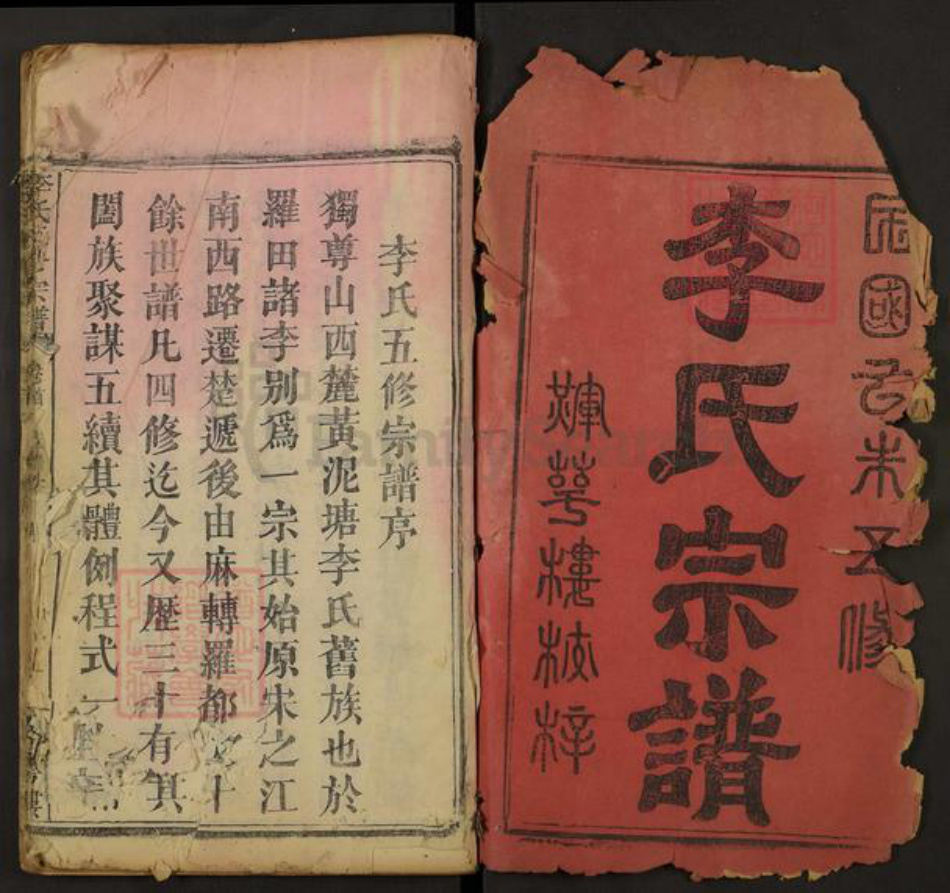 民國乙未五修
李氏宗譜
輝萼樓校梓
李氏五修宗譜序
獨尊山西麓黃泥塘李氏舊族也於
羅田諸李別爲一宗其始原宋之江
南西路遷楚遞後由麻轉羅都十
餘世譜凡四修迄今又歷三十有
闔族聚謀五續其體例程式一
FamilySearch